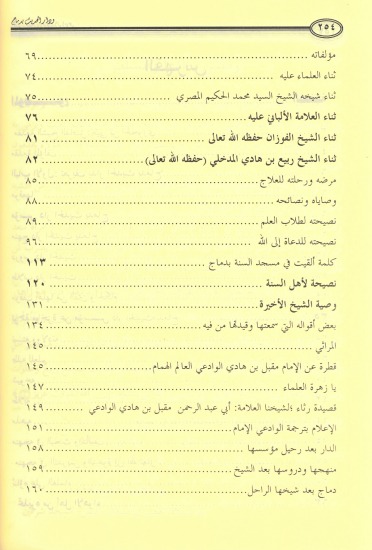 ٢٥٤
مؤلفاته ٦٩
ثناء العلماء عليه ٧٤
ثناء شيخه الشيخ السيد محمد الحكيم المصري ٧٥
ثناء العلامة الألباني عليه ٧٦
ثناء الشيخ الفوزان حفظه الله تعالى ٨١
ثناء الشيخ ربيع بن هادي المدخلي (حفظه الله تعالى) ٨٢
مرضه ورحلته للعلاج ٨٥
وصاياه ونصائحه ٨٨
نصيحته لطلاب العلم ٨٩
نصيحته للدعاة إلى الله ٩٦
كلمة ألقيت في مسجد السنة بدماج ١١٣
نصيحة لأهل السنة ١٢٠
وصية الشيخ الأخيرة ١٣١
بعض أقواله التي سمعتها وقيدتها من فيه ١٣٤
المراثي ١٤٥
قطرة عن الإمام مقبل بن هادي الوادعي العالم الهمام ١٤٥
يا زهرة العلماء ١٤٧
قصيدة رثاء لشيخنا العلامة: أبي عبد الرحمن مقبل بن هادي الوادعي ١٤٩
الإعلام بترجمة الوادعي الإمام ١٥١
الدار بعد رحيل مؤسسها ١٥٨
منهجها ودروسها بعد الشيخ ١٥٩
دماج بعد شيخها الراحل ١٦٠